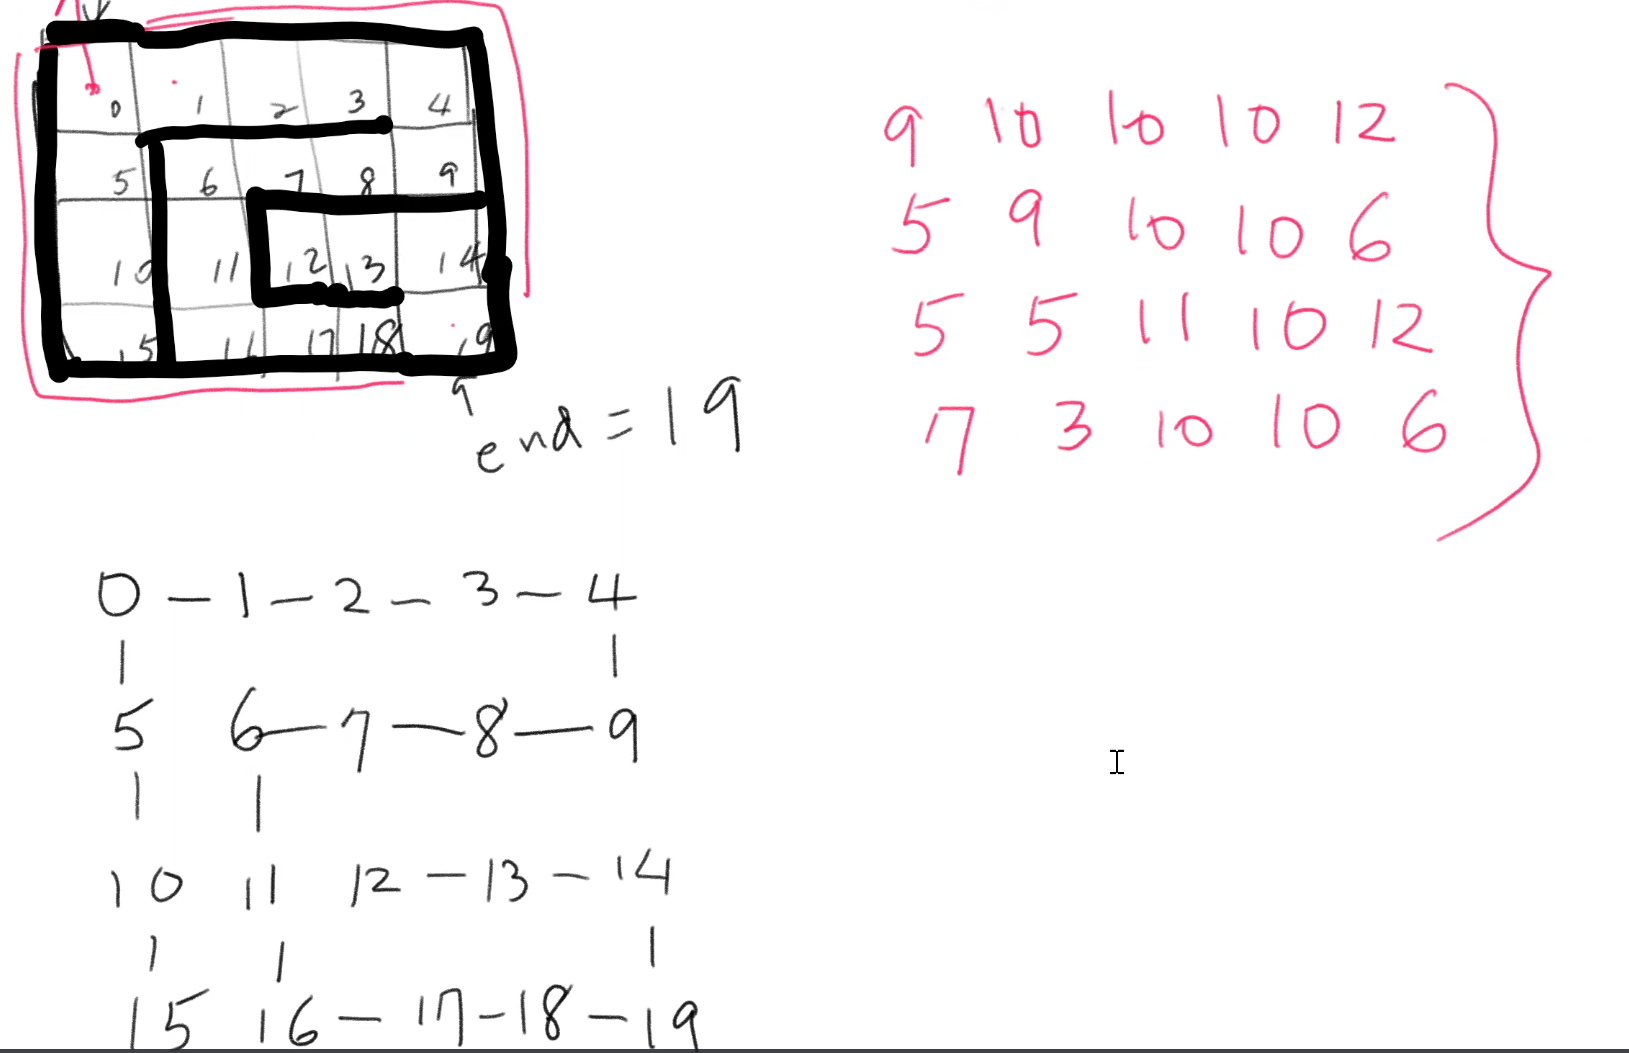 0 1 2 3 4
5 6 7 8 9
10 11 12 13 14
15 16 17 18 19
end = 19
9 10 10 10 12
5 9 10 10 6
5 5 11 10 12
7 3 10 10 6
0 - 1 - 2 - 3 - 4
| |
5 6 - 7 - 8 - 9
| |
10 11 12 - 13 - 14
| | |
15 16 - 17 - 18 - 19